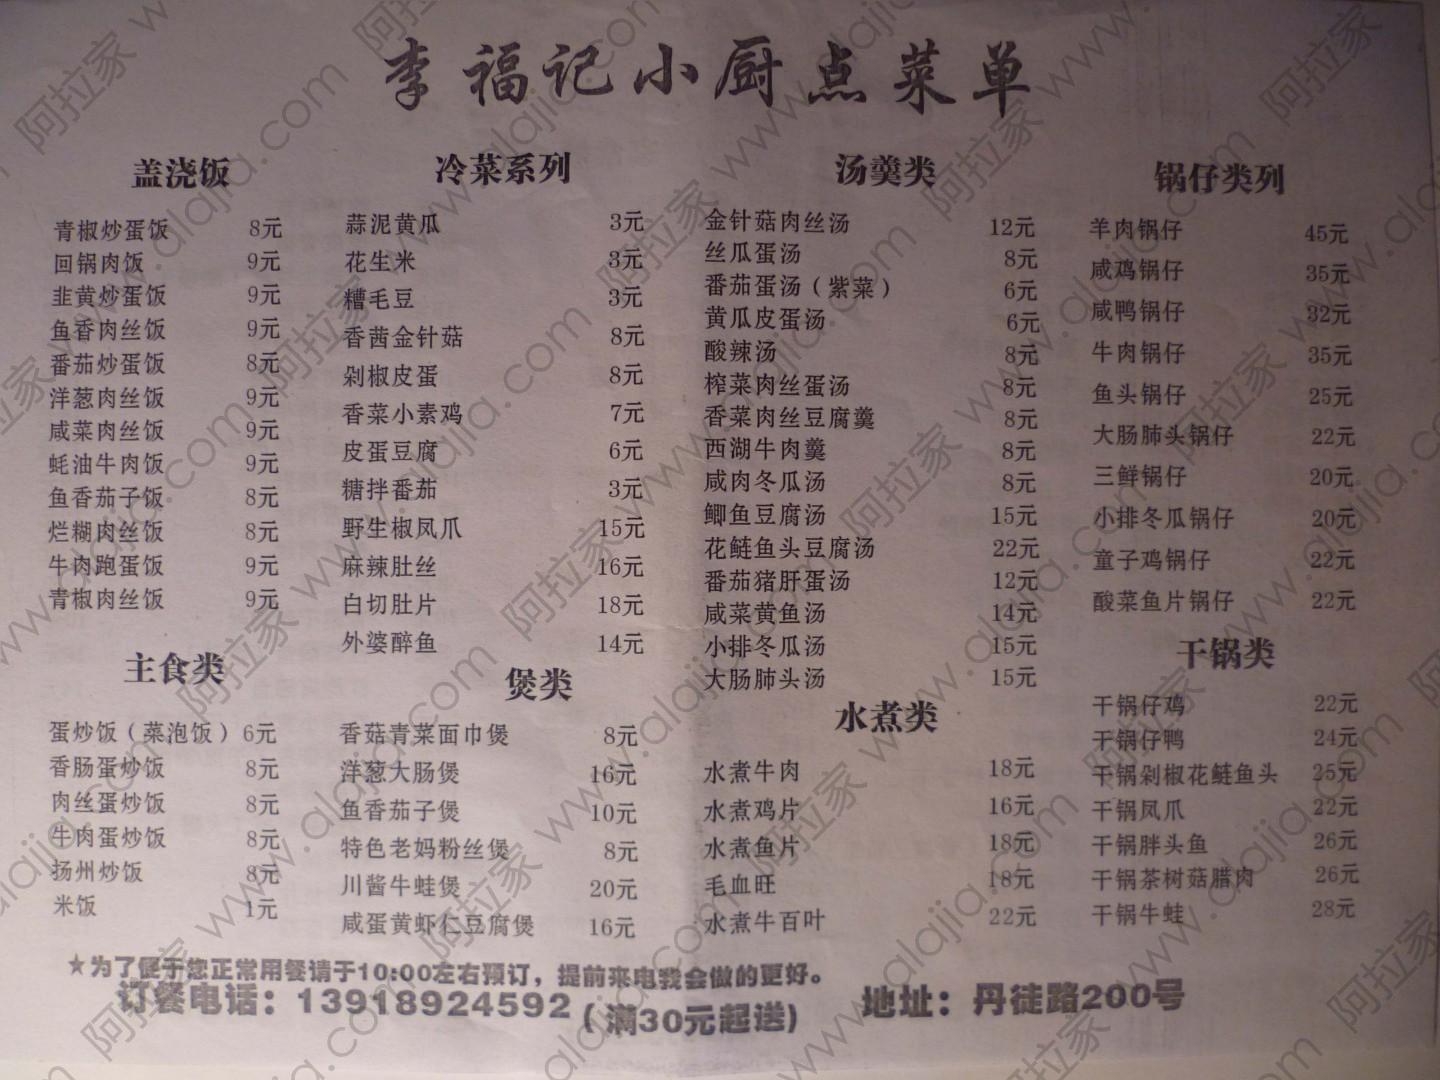 李福记小厨点菜单
盖浇饭
青椒炒蛋饭 8元
回锅肉饭 9元
韭黄炒蛋饭 9元
鱼香肉丝饭 9元
番茄炒蛋饭 8元
洋葱肉丝饭 9元
咸菜肉丝饭 9元
蚝油牛肉饭 9元
鱼香茄子饭 8元
烂糊肉丝饭 8元
牛肉跑蛋饭 9元
青椒肉丝饭 9元
主食类
蛋炒饭（菜泡饭）6元
香肠蛋炒饭 8元
肉丝蛋炒饭 8元
牛肉蛋炒饭 8元
扬州炒饭 8元
米饭 1元
冷菜系列
蒜泥黄瓜 3元
花生米 3元
糟毛豆 3元
香茜金针菇 8元
剁椒皮蛋 8元
香菜小素鸡 7元
皮蛋豆腐 6元
糖拌番茄 3元
野生椒凤爪 15元
麻辣肚丝 16元
白切肚片 18元
外婆醉鱼 14元
煲类
香菇青菜面巾煲 8元
洋葱大肠煲 16元
鱼香茄子煲 10元
特色老妈粉丝煲 8元
川酱牛蛙煲 20元
咸蛋黄虾仁豆腐煲 16元
汤羹类
金针菇肉丝汤 12元
丝瓜蛋汤 8元
番茄蛋汤（紫菜） 6元
黄瓜皮蛋汤 6元
酸辣汤 8元
榨菜肉丝蛋汤 8元
香菜肉丝豆腐羹 8元
西湖牛肉羹 8元
咸肉冬瓜汤 8元
鲫鱼豆腐汤 15元
花鲢鱼头豆腐汤 22元
番茄猪肝蛋汤 12元
咸菜黄鱼汤 14元
小排冬瓜汤 15元
大肠肺头汤 15元
水煮类
水煮牛肉 18元
水煮鸡片 16元
水煮鱼片 18元
毛血旺 18元
水煮牛百叶 22元
锅仔类列
羊肉锅仔 45元
咸鸡锅仔 35元
咸鸭锅仔 32元
牛肉锅仔 35元
鱼头锅仔 25元
大肠肺头锅仔 22元
三鲜锅仔 20元
小排冬瓜锅仔 20元
童子鸡锅仔 22元
酸菜鱼片锅仔 22元
干锅类
干锅仔鸡 22元
干锅仔鸭 24元
干锅剁椒花鲢鱼头 25元
干锅凤爪 22元
干锅胖头鱼 26元
干锅茶树菇腊肉 26元
干锅牛蛙 28元
★为了便于您正常用餐请于10:00左右预订，提前来电我会做的更好。
订餐电话：13918924592（满30元起送） 地址：丹徒路200号
阿拉家 www.alajia.com